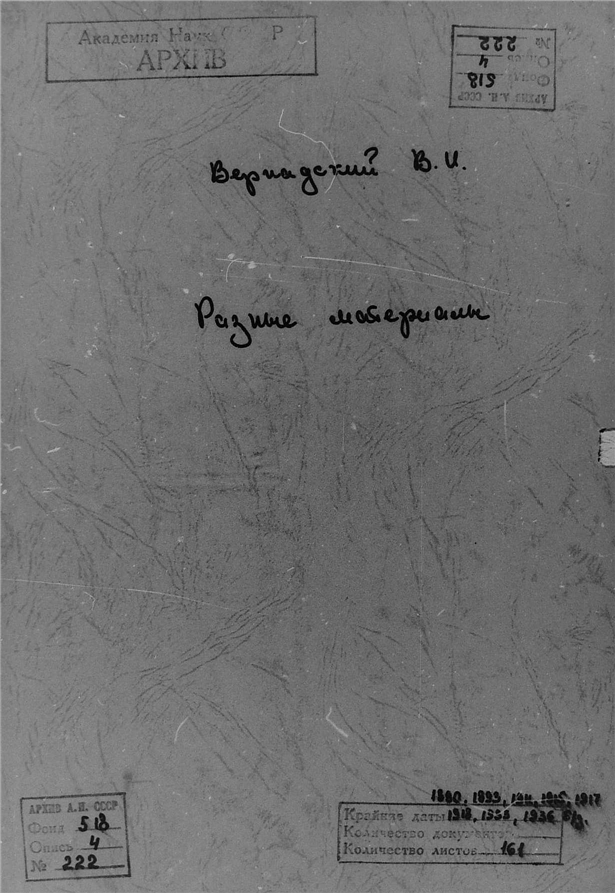 Академия Наук С Р
АРХИВ
АРХИВ А.Н. СССР
Фонд 518
Опись 4
№ 222
Вернадский В.И.
Разные материалы
АРХИВ А.Н. СССР
Фонд 518
Опись 4
№ 222
1917
Крайние даты 1918, 1936 б/д.
Количество документов
Количество листов 161